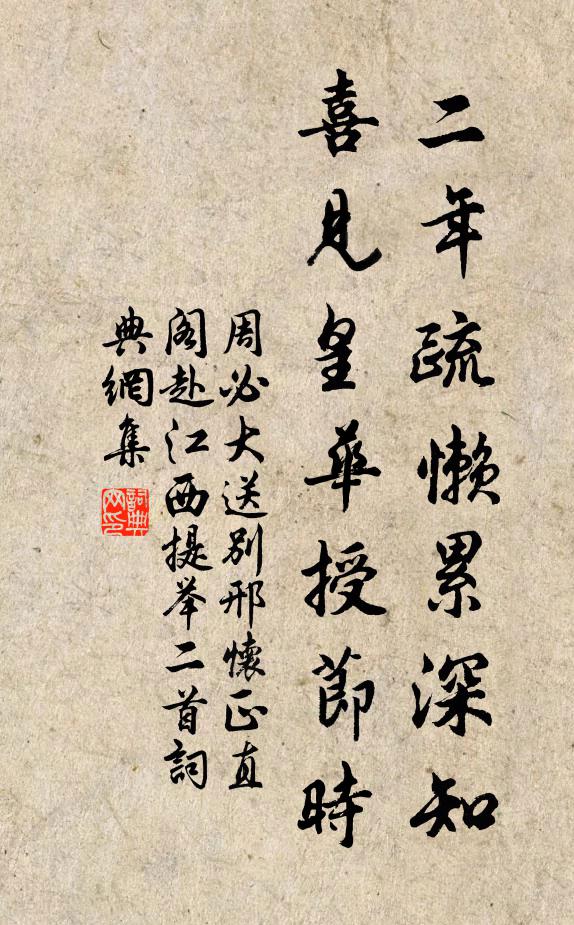 二年疏懒累深知
喜見皇華授節時
周必大送别邢懷正直
阁赴江西提举二首詞
典網集
詞典網印